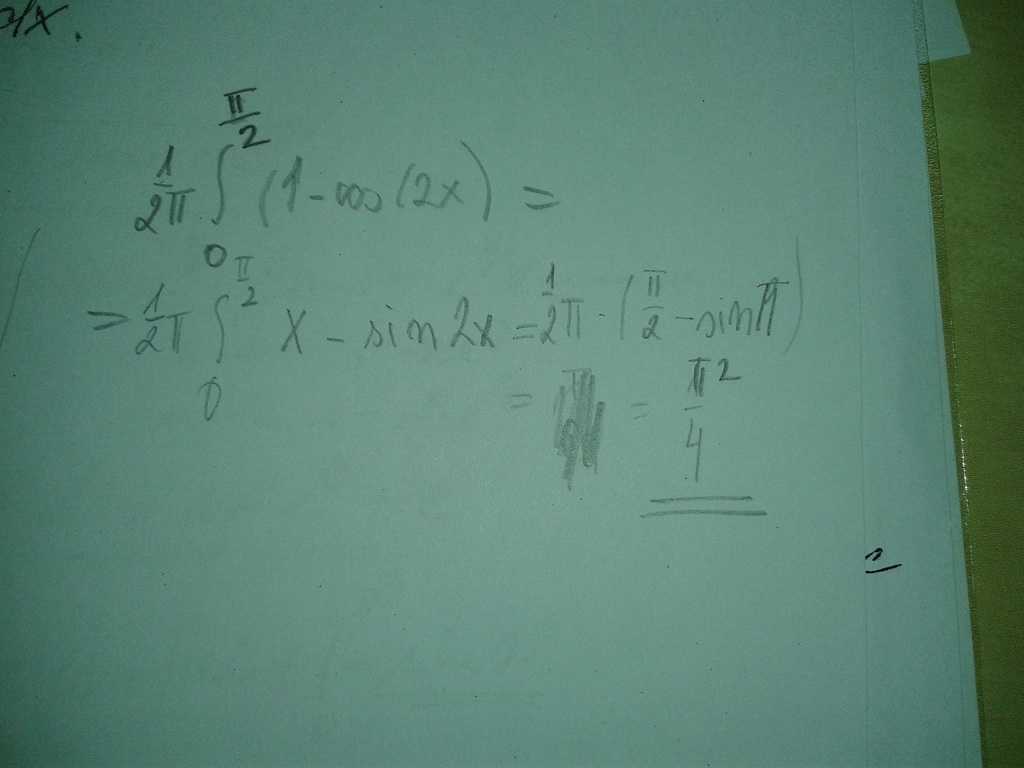 dx.
1/2π ∫₀^(π/2) (1-cos(2x) =
= 1/2π ∫₀^(π/2) x - sin 2x = 1/2π · (π/2 - sin π)
= = π²/4